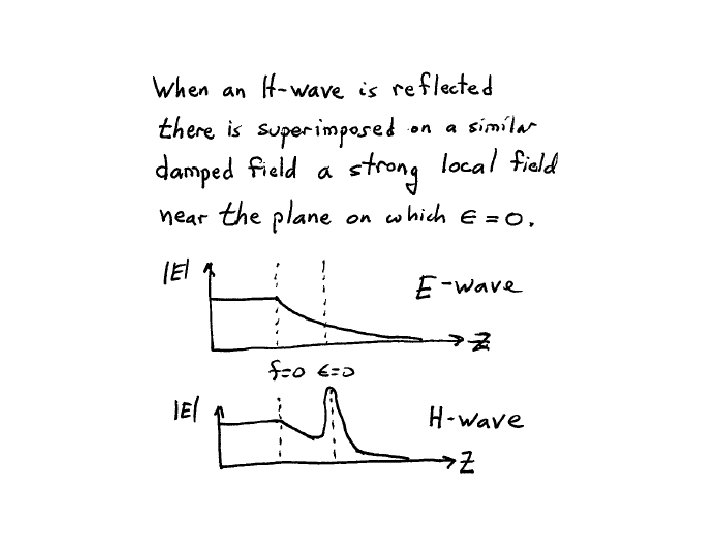 When an H-wave is reflected
there is superimposed on a similar
damped field a strong local field
near the plane on which ϵ = 0.
|E|
E-wave
Z
f=0 ϵ=0
|E|
H-wave
Z